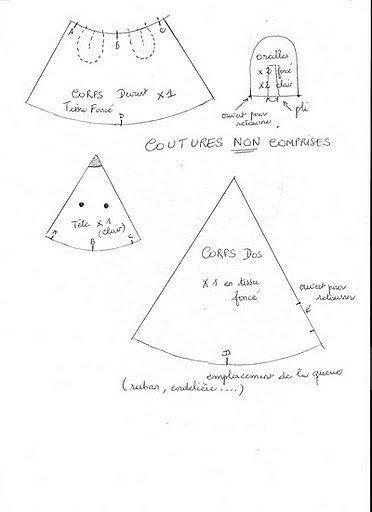 A
B
C
CORPS Devant x1
Tissu Foncé
D
oreilles
x 2 foncé
x 2 clair
ouvert pour
retourner
pli
COUTURES NON COMPRISES
Tête x 1
(clair)
A
B
C
CORPS Dos
X 1 en tissu
foncé
ouvert pour
retourner
D
emplacement de la queue
(ruban, cordelière ....)